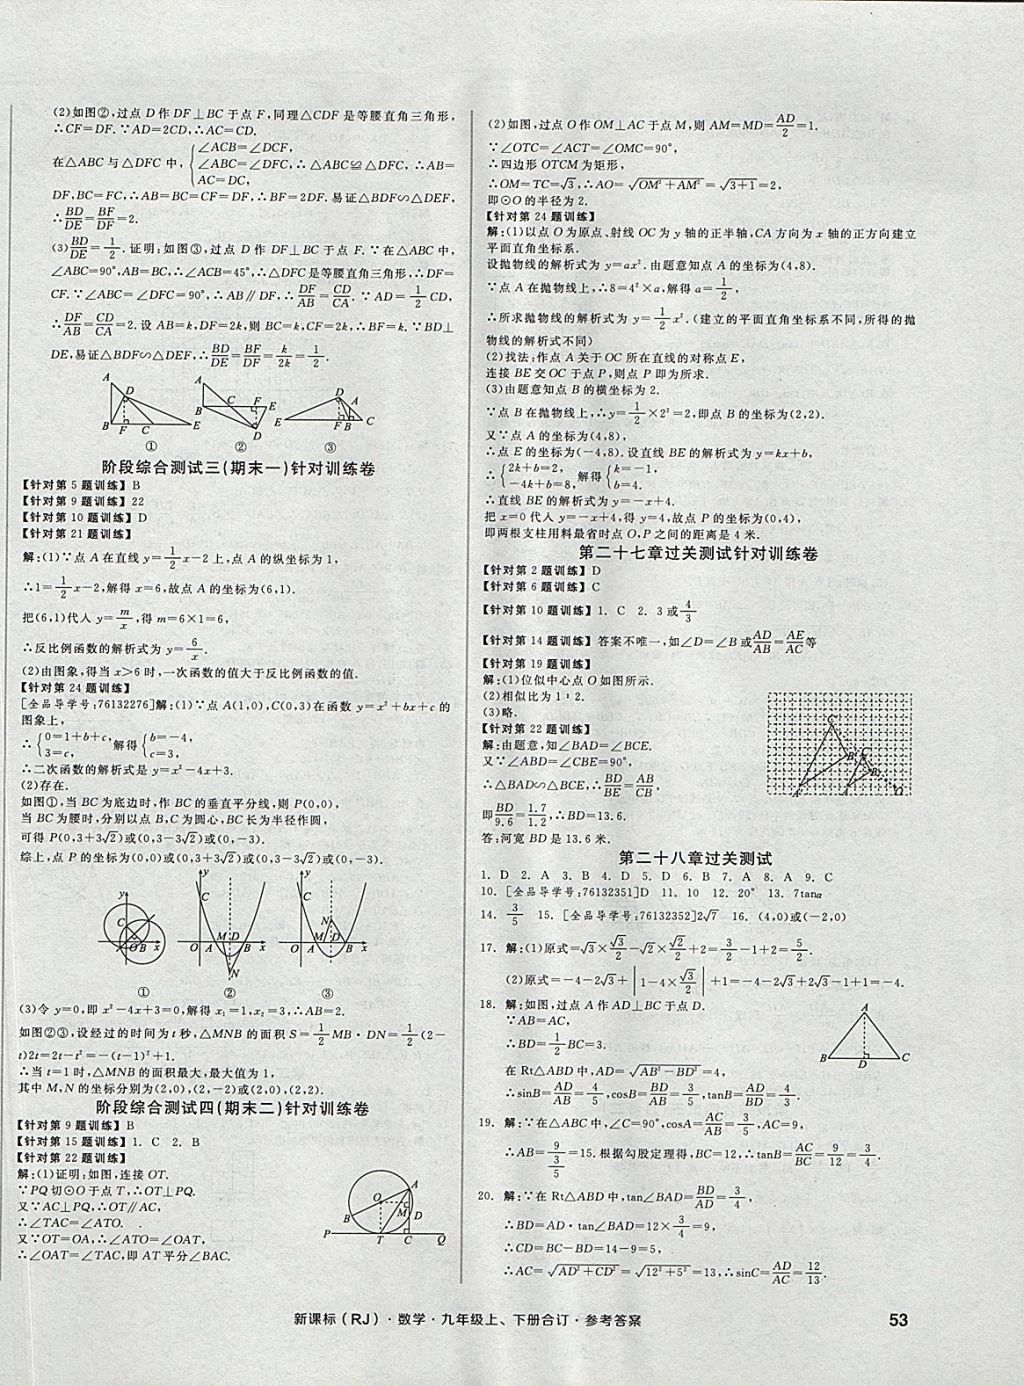 (2)如图②,过点 D 作 DF⊥BC 于点 F,同理△CDF 是等腰直角三角形,
∴CF=DF.∵AD=2CD,∴AC=CD.
在△ABC 与△DFC 中,{∠ACB=∠DCF, ∠ABC=∠DFC, AC=DC, ∴△ABC≌△DFC,∴AB=
DF,BC=FC,∴AB=BC=CF=DF,∴BF=2DF.易证△BDF∽△DEF,
∴BD/DE=BF/DF=2.
(3)BD/DE=1/2.证明:如图③,过点 D 作 DF⊥BC 于点 F.∵在△ABC 中,
∠ABC=90°,AB=BC,∴∠ACB=45°,∴△DFC 是等腰直角三角形,∴DF=
CF.∵∠ABC=∠DFC=90°,∴AB∥DF,∴DF/AB=CD/CA.∵AD=1/2CD,
∴DF/AB=CD/CA=2.设 AB=k,DF=2k,则 BC=k,CF=2k,∴BF=k.∵BD⊥
DE,易证△BDF∽△DEF,∴BD/DE=BF/DF=k/2k=1/2.
A D B F C E
A B C F E D
D A E F B C
① ② ③
阶段综合测试三(期末一)针对训练卷
【针对第 5 题训练】B
【针对第 9 题训练】22
【针对第 10 题训练】D
【针对第 21 题训练】
解:(1)∵点 A 在直线 y=1/2x-2 上,点 A 的纵坐标为 1,
∴1=1/2x-2,解得 x=6,故点 A 的坐标为(6,1).
把(6,1)代入 y=m/x,得 m=6×1=6,
∴反比例函数的解析式为 y=6/x.
(2)由图象,得当 x>6 时,一次函数的值大于反比例函数的值.
【针对第 24 题训练】
[全品导学号:76132276]解:(1)∵点 A(1,0),C(0,3)在函数 y=x²+bx+c 的
图象上,
∴{0=1+b+c, 3=c, 解得{b=-4, c=3,
∴二次函数的解析式是 y=x²-4x+3.
(2)存在.
如图①,当 BC 为底边时,作 BC 的垂直平分线,则 P(0,0),
当 BC 为腰时,分别以点 B,C 为圆心,BC 长为半径作圆,
可得 P(0,3+3√2)或(0,3-3√2)或(0,-3).
综上,点 P 的坐标为(0,0)或(0,3+3√2)或(0,3-3√2)或(0,-3).
y C O B x
y C O A M D B x N
y C N O A M D B x
① ② ③
(3)令 y=0,即 x²-4x+3=0,解得 x₁=1,x₂=3,∴AB=2.
如图②③,设经过的时间为 t 秒,△MNB 的面积 S=1/2MB·DN=1/2(2-
t)2t=2t-t²=-(t-1)²+1.
∴当 t=1 时,△MNB 的面积最大,最大值为 1,
其中 M,N 的坐标分别为(2,0),(2,-2)或(2,0),(2,2).
阶段综合测试四(期末二)针对训练卷
【针对第 9 题训练】B
【针对第 15 题训练】1. C 2. B
【针对第 22 题训练】
解:(1)证明:如图,连接 OT.
∵PQ 切⊙O 于点 T,∴OT⊥PQ.
又∵AC⊥PQ,∴OT∥AC,
∴∠TAC=∠ATO.
又∵OT=OA,∴∠ATO=∠OAT,
∴∠OAT=∠TAC,即 AT 平分∠BAC.
O A M D B P T C Q
(2)如图,过点 O 作 OM⊥AC 于点 M,则 AM=MD=AD/2=1.
∵∠OTC=∠ACT=∠OMC=90°,
∴四边形 OTCM 为矩形,
∴OM=TC=√3,∴AO=√(OM²+AM²)=√(3+1)=2,
即⊙O 的半径为 2.
【针对第 24 题训练】
解:(1)以点 O 为原点、射线 OC 为 y 轴的正半轴,CA 方向为 x 轴的正方向建立
平面直角坐标系.
设抛物线的解析式为 y=ax².由题意知点 A 的坐标为(4,8).
∵点 A 在抛物线上,∴8=4²×a,解得 a=1/2,
∴所求抛物线的解析式为 y=1/2x².(建立的平面直角坐标系不同,所得的抛
物线的解析式不同)
(2)找法:作点 A 关于 OC 所在直线的对称点 E,
连接 BE 交 OC 于点 P,则点 P 即为所求.
(3)由题意知点 B 的横坐标为 2.
∵点 B 在抛物线上,∴y=1/2×2²=2,即点 B 的坐标为(2,2).
又∵点 A 的坐标为(4,8),
∴点 E 的坐标为(-4,8).设直线 BE 的解析式为 y=kx+b,
∴{2k+b=2, -4k+b=8, 解得{k=-1, b=4.
∴直线 BE 的解析式为 y=-x+4.
把 x=0 代入 y=-x+4,得 y=4,故点 P 的坐标为(0,4),
即两根支柱用料最省时点 O,P 之间的距离是 4 米.
第二十七章过关测试针对训练卷
【针对第 2 题训练】D
【针对第 6 题训练】C
【针对第 10 题训练】1. C 2. 3 或4/3
【针对第 14 题训练】答案不唯一,如∠D=∠B 或AD/AB=AE/AC等
【针对第 19 题训练】
解:(1)位似中心点 O 如图所示.
(2)相似比为 1∶2.
(3)略.
【针对第 22 题训练】
解:由题意,知∠BAD=∠BCE.
又∵∠ABD=∠CBE=90°,
∴△BAD∽△BCE,∴BD/BE=AB/CB,
即BD/9.6=1.7/1.2,∴BD=13.6.
答:河宽 BD 是 13.6 米.
第二十八章过关测试
1. D 2. A 3. B 4. D 5. D 6. B 7. A 8. A 9. C
10. [全品导学号:76132351]D 11. 10 12. 20° 13. 7tanα
14. 3/5 15. [全品导学号:76132352]2√7 16. (4,0)或(-2,0)
17. 解:(1)原式=√3×√3/2-√2×√2/2+2=3/2-1+2=5/2.
(2)原式=-4-2√3+|1-4×√3/2|+1=-4-2√3+2√3-1+1=-4.
18. 解:如图,过点 A 作 AD⊥BC 于点 D.
∵AB=AC,
∴BD=1/2BC=3.
在 Rt△ABD 中,AD=√(AB²-BD²)=4,
∴sinB=AD/AB=4/5,cosB=BD/AB=3/5,tanB=AD/BD=4/3.
A B D C
19. 解:∵在△ABC 中,∠C=90°,cosA=AC/AB=3/5,AC=9,
∴AB=9/(3/5)=15.根据勾股定理得,BC=12,∴tanB=AC/BC=9/12=3/4.
20. 解:∵在 Rt△ABD 中,tan∠BAD=BD/AD=3/4,
∴BD=AD·tan∠BAD=12×3/4=9,
∴CD=BC-BD=14-9=5,
∴AC=√(AD²+CD²)=√(12²+5²)=13,∴sinC=AD/AC=12/13.
新课标(RJ)·数学·九年级上、下册合订·参考答案
53